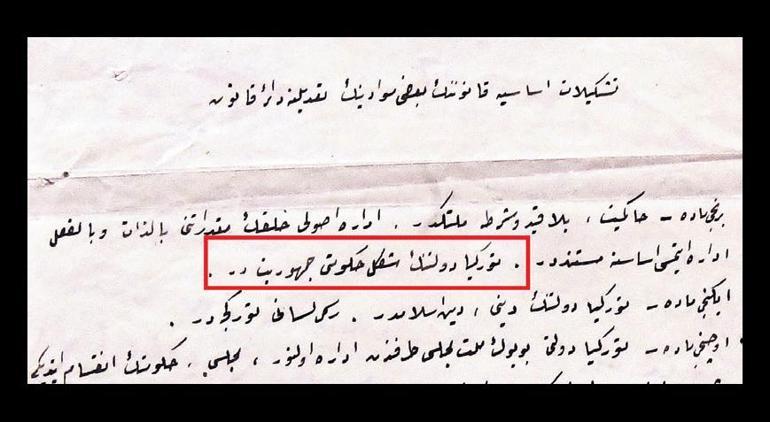 تشكيلات اساسيه قانوننك بعضى موادينك تعديلنه دائر قانون
برنجى ماده – حاكميت ، بلا قيد و شرط ملتكدر . اداره اصولى خلقك مقدراتنى بالذات و بالفعل
اداره ايتمسى اساسنه مستنددر . توركيا دولتنك شكل حكومتى جمهوريت در .
ايكنجى ماده – توركيا دولتنك دينى ، دين اسلامدر . رسمى لسانى توركجه در .
اوچنجى ماده – توركيا دولتى بويوك ملت مجلسى طرفندن اداره اولنور . مجلس ، حكومتك انقسام ايتديكى